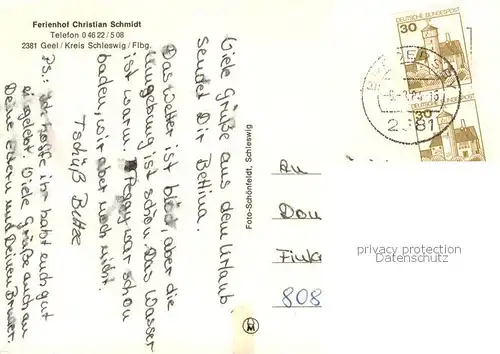 Ferienhof Christian Schmidt
Telefon 0 46 22 / 5 08
2381 Geel / Kreis Schleswig / Flbg.
Viele Grüße aus dem Urlaub
sendet Dir Bettina.
Das Wetter ist blöd, aber die
Umgebung ist schön. Das Wasser
ist warm. Peggy war schon
baden, wir aber noch nicht.
Tschüß Butze
PS.: ihr habt euch gut
Viele Grüße auch an
Deine Eltern und Deinen Bruder.
Foto-Schönfeldt, Schleswig
DEUTSCHE BUNDESPOST
30
30
2381
An
Don
Fink
808
privacy protection
Datenschutz